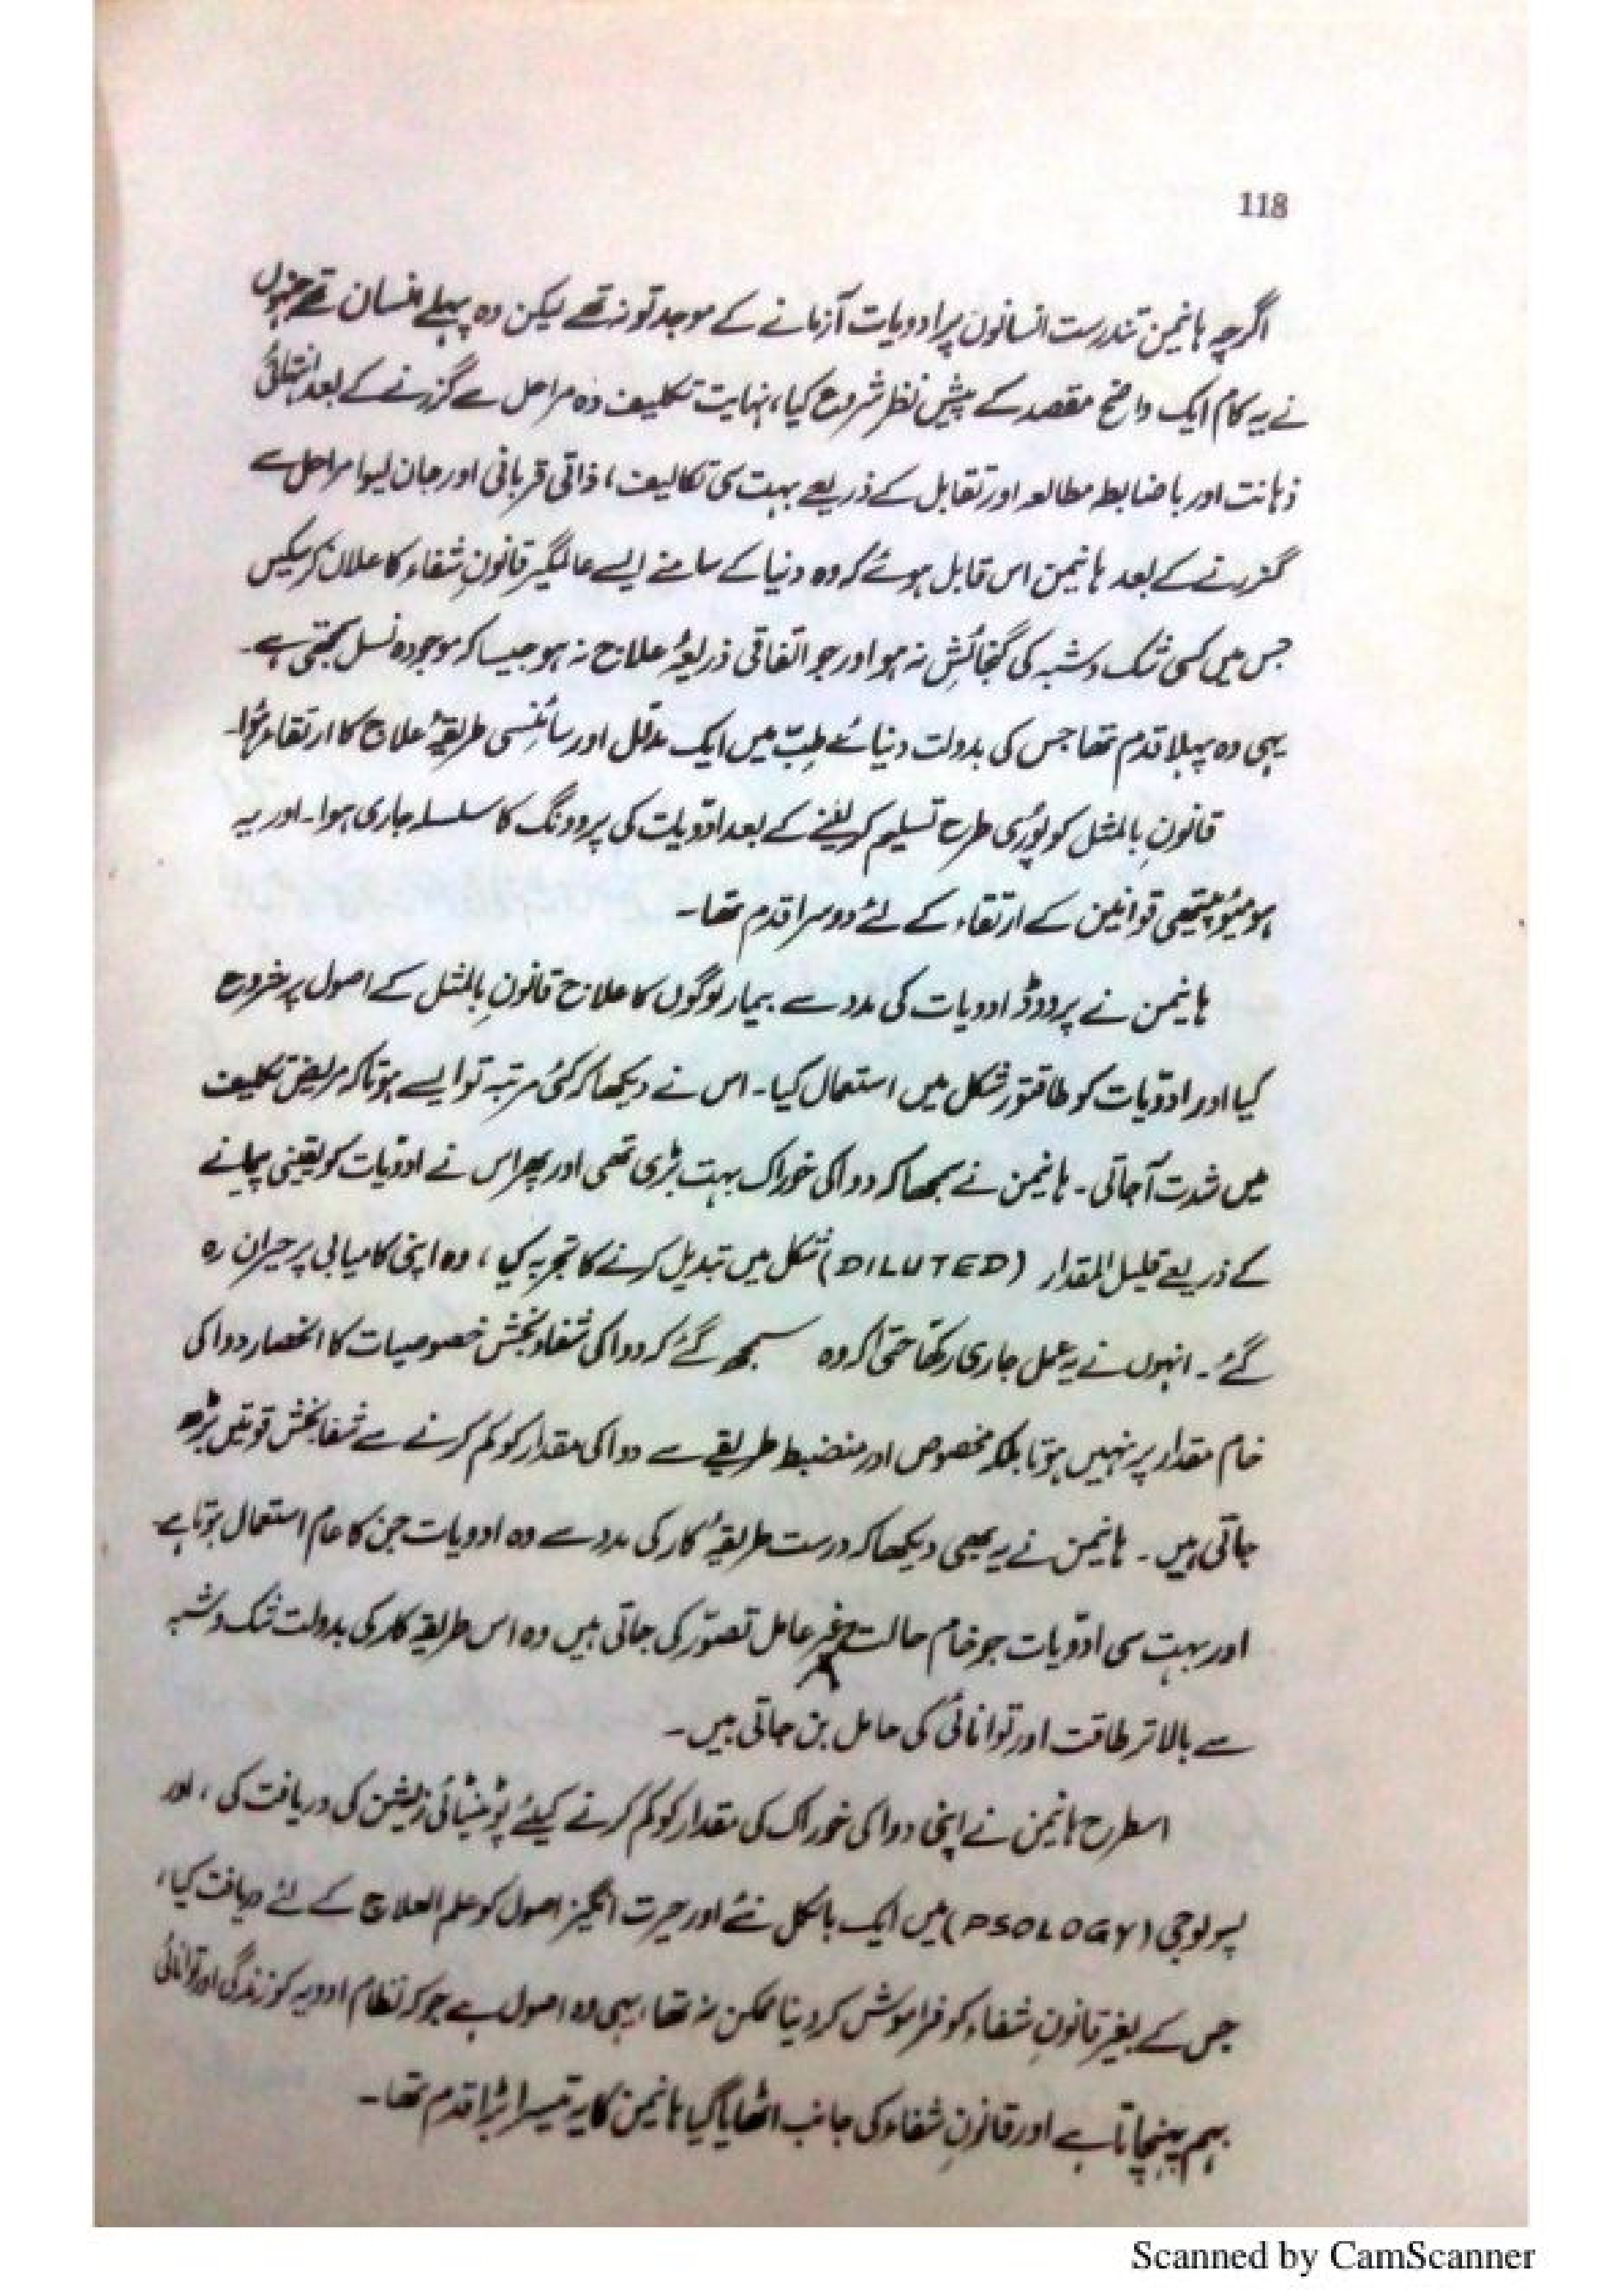 118
اگرچہ ہانیمن تندرست انسانوں پر ادویات آزمانے کے موجد تو نہ تھے لیکن وہ پہلے انسان تھے جنہوں
نے یہ کام ایک واضح مقصد کے پیشِ نظر شروع کیا، نہایت تکلیف دہ مراحل سے گزرنے کے بعد انتہائی
ذہانت اور باضابطہ مطالعہ اور تقابل کے ذریعے بہت سی تکالیف، ذاتی قربانی اور جان لیوا مراحل سے
گزرنے کے بعد ہانیمن اس قابل ہوئے کہ وہ دنیا کے سامنے ایسے عالمگیر قانونِ شفاء کا علان کر سکیں
جس میں کسی شک و شبہ کی گنجائش نہ ہو اور جو اتفاقی ذریعۂ علاج نہ ہو جیسا کہ موجودہ نسل سمجھتی ہے۔
یہی وہ پہلا قدم تھا جس کی بدولت دنیائے طِبّ میں ایک مدلّل اور سائنسی طریقۂ علاج کا ارتقاء ہُوا۔
قانونِ بالمثل کو پُوری طرح تسلیم کر لینے کے بعد ادویات کی پرووِنگ کا سلسلہ جاری ہوا۔ اور یہ
ہومیوپیتھی قوانین کے ارتقاء کے لئے دوسرا قدم تھا۔
ہانیمن نے پرووڈ ادویات کی مدد سے بیمار لوگوں کا علاج قانونِ بالمثل کے اصول پر شروع
کیا اور ادویّات کو طاقتور شکل میں استعمال کیا۔ اس نے دیکھا کہ کئی مرتبہ تو ایسے ہوتا کہ مریض تکلیف
میں شدت آ جاتی۔ ہانیمن نے سمجھا کہ دوا کی خوراک بہت بڑی تھی اور پھر اس نے ادویّات کو یقینی پیمانے
کے ذریعے قلیل المقدار (DILUTED) شکل میں تبدیل کرنے کا تجربہ کیا، وہ اپنی کامیابی پر حیران رہ
گئے۔ انہوں نے یہ عمل جاری رکھّا حتّیٰ کہ وہ سمجھ گئے کہ دوا کی شفاء بخش خصوصیات کا انحصار دوا کی
خام مقدار پر نہیں ہوتا بلکہ مخصوص اور منضبط طریقے سے دوا کی مقدار کو کم کرنے سے شفا بخش قوتیں بڑھ
جاتی ہیں۔ ہانیمن نے یہ بھی دیکھا کہ درست طریقۂ کار کی مدد سے وہ ادویات جن کا عام استعمال ہوتا ہے۔
اور بہت سی ادویّات جو خام حالت غیر عامل تصوّر کی جاتی ہیں وہ اس طریقۂ کار کی بدولت شک و شبہ
سے بالاتر طاقت اور توانائی کی حامل بن جاتی ہیں۔
اسطرح ہانیمن نے اپنی دوا کی خوراک کی مقدار کو کم کرنے کیلئے پوٹینٹائی زیشن کی دریافت کی، اور
پسولوجی (PSOLOGY) میں ایک بالکل نئے اور حیرت انگیز اصول کو علم العلاج کے لئے دریافت کیا،
جس کے بغیر قانونِ شفاء کو فراموش کر دینا ممکن نہ تھا، یہی وہ اصول ہے جو کہ نظام ادویہ کو زندگی اور توانائی
بہم پہنچاتا ہے اور قانونِ شفاء کی جانب اٹھایا گیا ہانیمن کا یہ تیسرا بڑا قدم تھا۔
Scanned by CamScanner